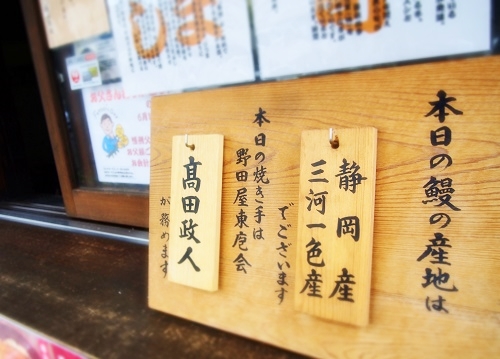 本日の鰻の産地は
静岡産
三河一色産
でございます
本日の焼き手は
野田屋東庖会
髙田政人
が務めます